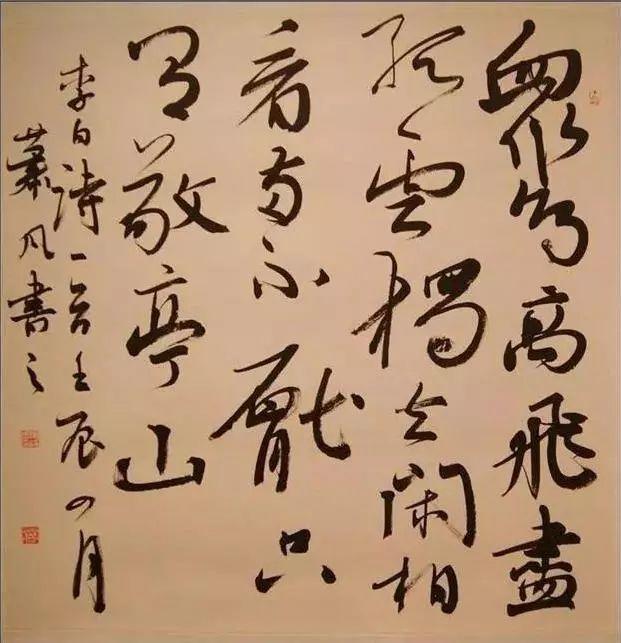 眾鳥高飛盡
孤雲獨去閑相
看兩不厭只
有敬亭山
李白詩一首壬辰四月
蕭風書之